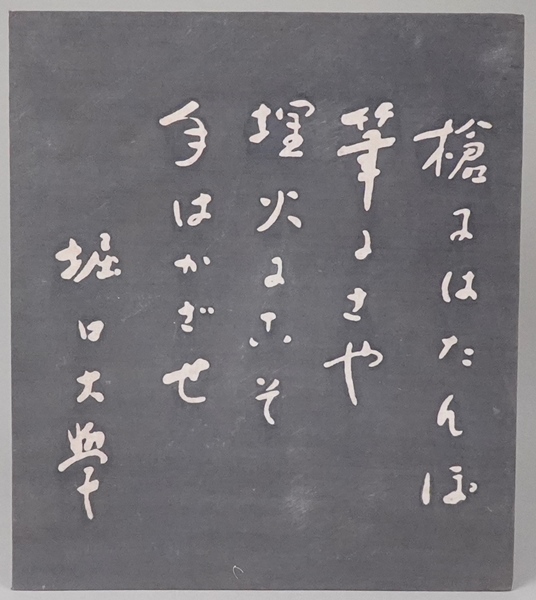 槍にはたんぽ
筆にさや
埋火にこそ
手はかざせ
堀口大學